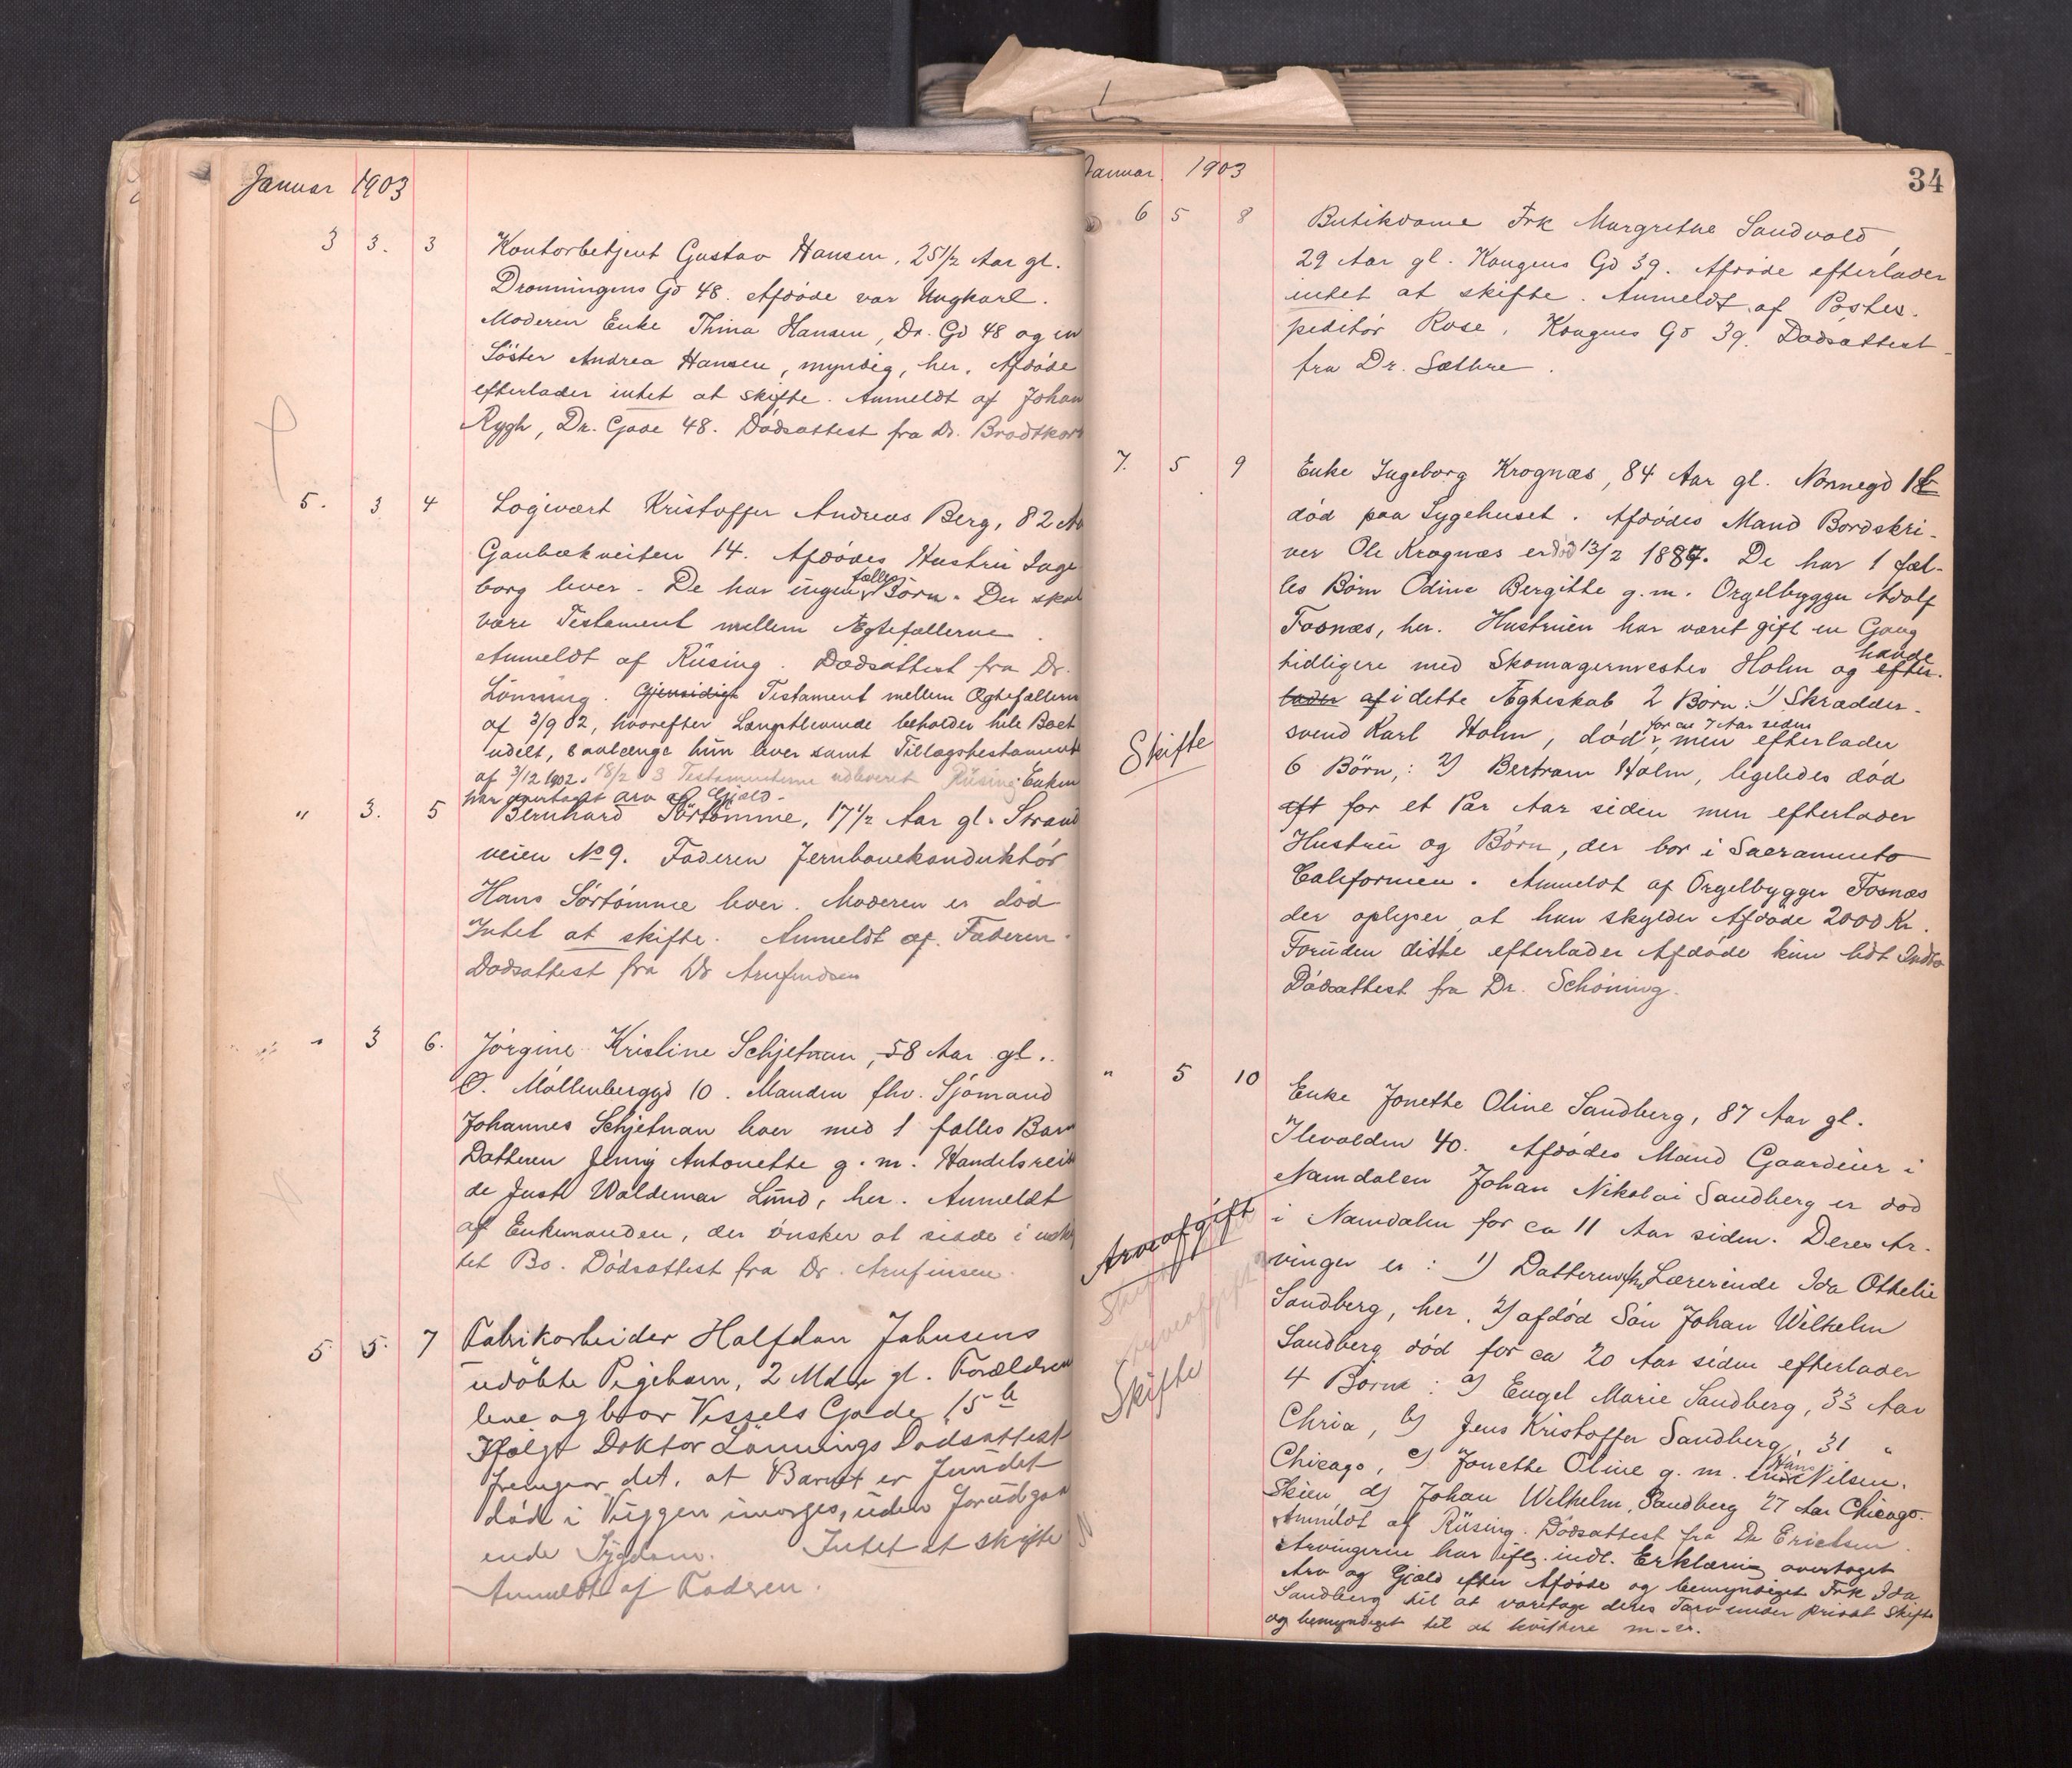 Januar 1903
3 3. 3 Kontorbetjent Gustav Hansen, 25 1/2 Aar gl.
Dronningens Gd 48. Afdøde var Ungkarl.
Moderen Enke Thina Hansen, Dr. Gd 48 og en
Söster Andrea Hansen, myndig, her. Afdöde
efterlader intet at skifte. Anmeldt af Johan
Rygh, Dr. Gade 48. Dödsattest fra Dr. Brodtkorb
5. 3 4 Logivært Kristoffer Andreas Berg, 82 Aa
Gaubækveiten 14. Afdödes Hustru Inge
borg lever. De har ingen fælles Börn. Der skal
være Testament mellem Ægtefællerne.
Anmeldt af Rüsing. Dødsattest fra Dr.
Lönning. Gjensidigt Testament mellem Ægtefællerne
af 3/9 02, hvorefter Længstlevende beholder hele Boet
udelt, saalænge hun lever samt Tillægstestament
af 3/12 1902. 18/2 3 Testamenterne udleveret Rüsing. Enken
har overtaget Arv og Gjæld.
" 3. 5 Bernhard Sörtömme, 17 1/2 Aar gl. Strand
veien No 9. Faderen Jernbanekonduktör
Hans Sörtömme lever. Moderen er död
Intet at skifte. Anmeldt af Faderen.
Dødsattest fra Dr
" 3 6. Jörgine Kristine Schjetnan, 58 Aar gl..
O. Möllenberggd 10. Manden fhv. Sjömand
Johannes Schjetnan lever med 1 fælles Barn
Datteren Jenny Antonette g. m. Handelsreisen
de Just Waldemar Lund, her. Anmeldt
af Enkemanden, der önsker at sidde i uskif
tet Bo. Dödsattest fra Dr. Arnfinsen.
5 5. 7 Fabrikarbeider Halfdan Jahnsens
udöbte Pigebarn, 2 Mdr gl. Forældrene
leve og bor Vessels Gade 15 b
Ifölge Doktor Lönnings Dødsattest
fremgaar det, at Barnet er fundet
död i Vuggen imorges, uden forudgaa
ende Sygdom. Intet at skifte
Anmeldt af Faderen.
Januar 1903
34
6 5 8 Butikdame Frk Margrethe Sandvold,
29 Aar gl. Kongens Gd 39. Afdöde efterlader
intet at skifte. Anmeldt af Postex-
peditör Rose, Kongens Gd 39. Dødsattest
fra Dr. Sæthre.
7. 5 9 Enke Ingeborg Krognæs, 84 Aar gl. Nonnegd
död paa Sygehuset. Afdödes Mand Bordskri-
ver Ole Krognæs er död 13/2 1887. De har 1 fæl-
les Börn Odine Bergitte g. m. Orgelbygger Adolf
Fosnæs, her. Hustruen har været gift en Gang
tidligere med Skomagermester Holm og havde efter-
lader af i dette Ægteskab 2 Børn: 1) Skrædder-
Skifte
svend Karl Holm, död for ca 7 Aar siden, men efterlader
6 Börn,: 2) Bertram Holm, ligeledes död
eft for et Par Aar siden men efterlader
Hustru og Börn, der bor i Sacramento
Californien. Anmeldt af Orgelbygger Fosnæs
der oplyser at han skylder Afdöde 2000 Kr.
Foruden dette efterlader Afdöde kun lidt Indbo
Dödsattest fra Dr. Schöning.
" 5 10 Enke Jonette Oline Sandberg, 87 Aar gl.
Ilevolden 40. Afdödes Mand Gaardeier i
Namdalen Johan Nikolai Sandberg er död
i Namdalen for ca 11 Aar siden. Deres Ar-
Arveafgift
vinger er: 1) Datteren fhv Lærerinde Ida Othelie
Sandberg, her, 2) afdöd Sön Johan Wilhelm
Sandberg död for ca 20 Aar siden efterlader
Skifte
4 Børn: a) Engel Marie Sandberg, 33 Aar
Chria, b) Jens Kristoffer Sandberg, 31 "
Chicago, c) Jonette Oline g. m. Hans Nilsen,
Skien, d) Johan Wilhelm Sandberg 27 Aar Chicago.
Anmeldt af Rüsing. Dödsattest fra Dr Erichsen.
Arvingerne har iflg. indl. Erklæring overtaget
Arv og Gjæld efter Afdöde og bemyndiget Frk Ida
Sandberg til at varetage deres Tarv under privat Skifte
og bemyndiget til at kvittere m. v.